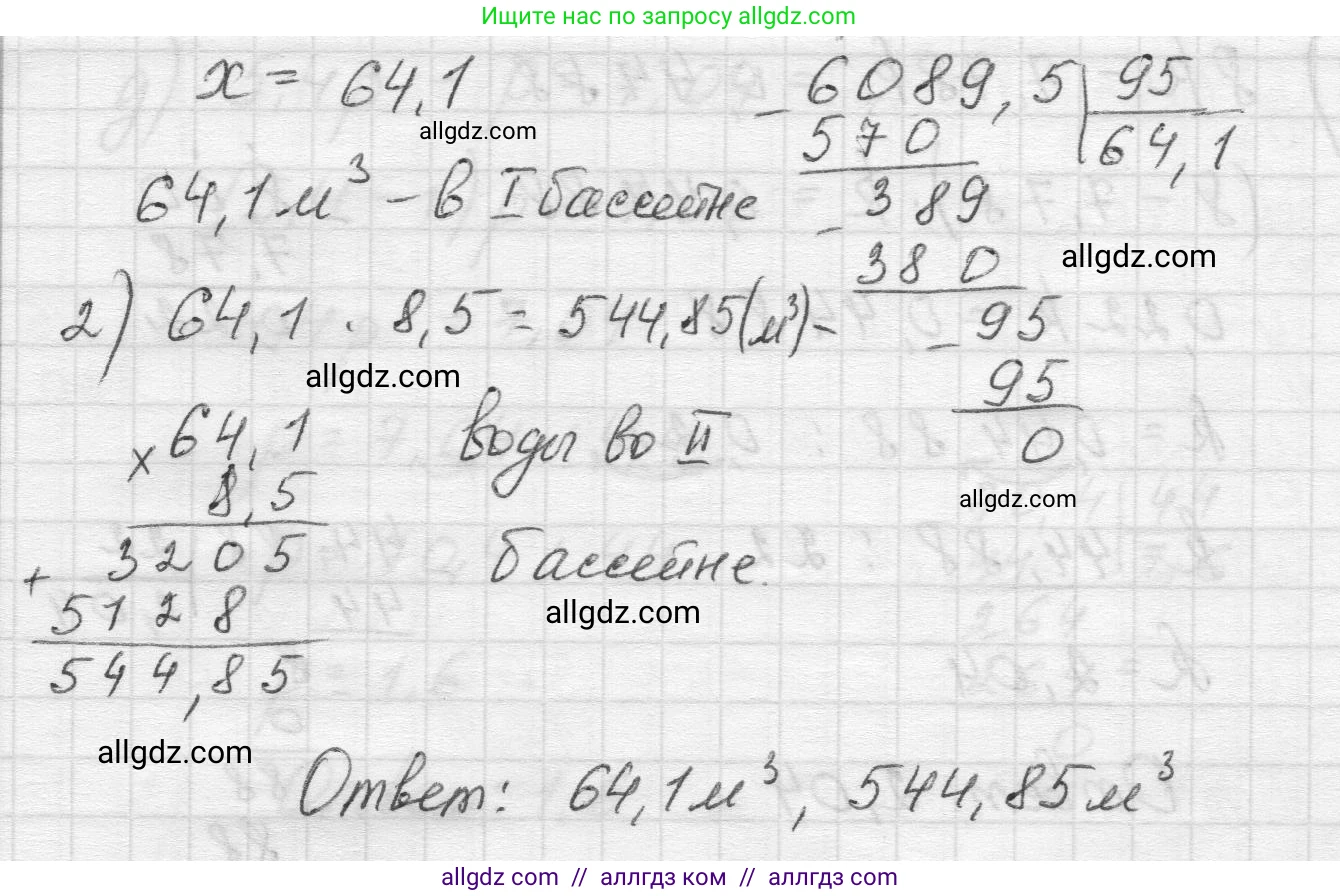 Ищите нас по запросу allgdz.com
x = 64,1
allgdz.com
64,1 м³ - в I бассейне
2) 64,1 · 8,5 = 544,85 (м³) -
allgdz.com
воды во II
бассейне.
allgdz.com
× 64,1
8,5
3205
+ 5128
544,85
allgdz.com
- 6089,5 | 95
570 64,1
- 389
380
allgdz.com
- 95
95
0
allgdz.com
Ответ: 64,1 м³, 544,85 м³
allgdz.com // аллгдз ком // allgdz.com